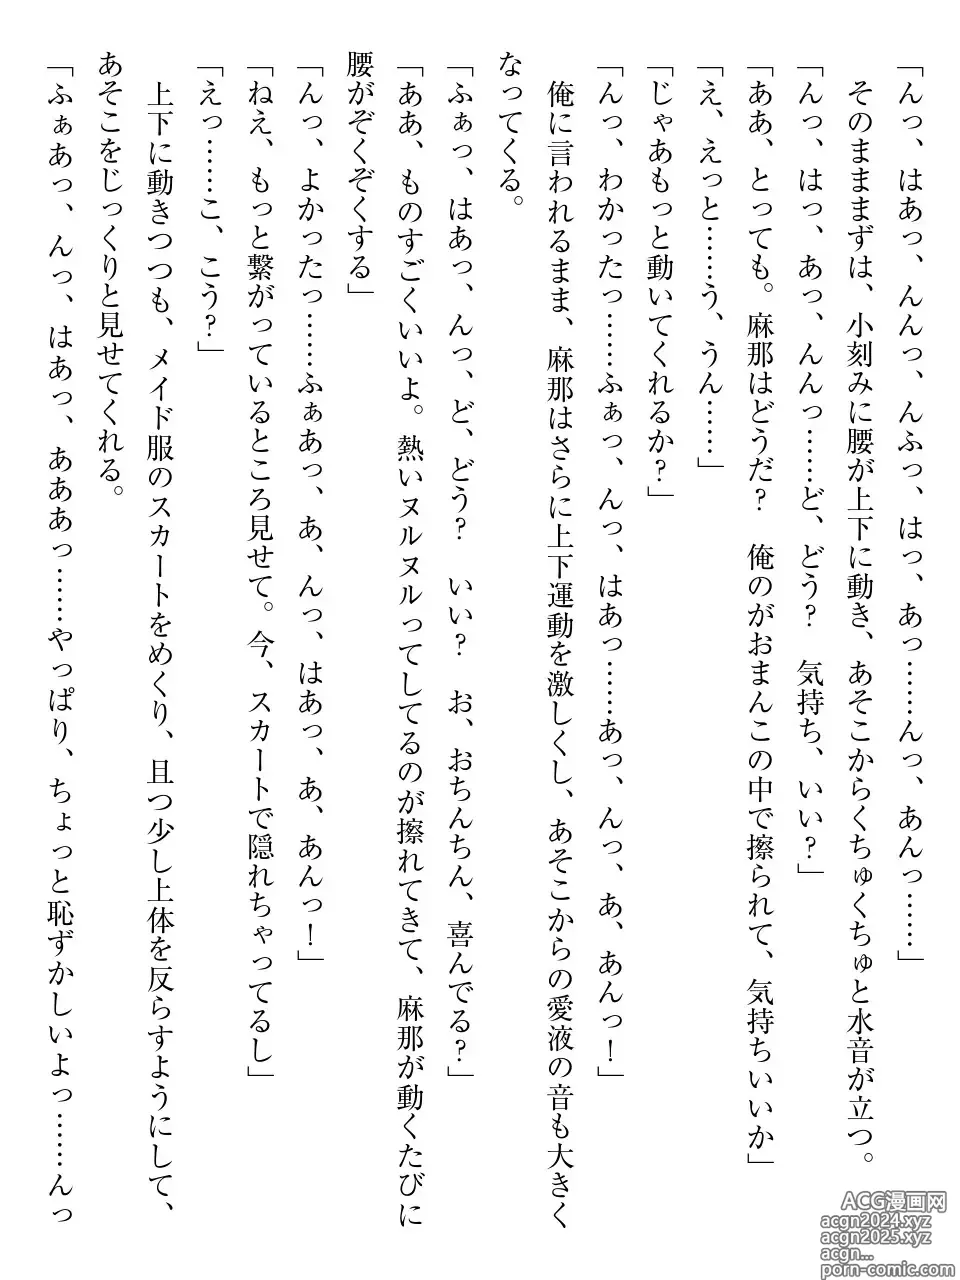 「んっ、はあっ、んんっ、んふっ、はっ、あっ……んっ、あんっ……」
そのまままずは、小刻みに腰が上下に動き、あそこからくちゅくちゅと水音が立つ。
「んっ、はっ、あっ、んんっ……ど、どう？　気持ち、いい？」
「ああ、とっても。麻那はどうだ？　俺のがおまんこの中で擦られて、気持ちいいか」
「え、えっと……う、うん……」
「じゃあもっと動いてくれるか？」
「んっ、わかったっ……ふぁっ、んっ、はあっ……あっ、んっ、あ、あんっ！」
俺に言われるまま、麻那はさらに上下運動を激しくし、あそこからの愛液の音も大きく
なってくる。
「ふぁっ、はあっ、んっ、ど、どう？　いい？　お、おちんちん、喜んでる？」
「ああ、ものすごくいいよ。熱いヌルヌルってしてるのが擦れてきて、麻那が動くたびに
腰がぞくぞくする」
「んっ、よかったっ……ふぁあっ、あ、んっ、はあっ、あ、あんっ！」
「ねえ、もっと繋がっているところ見せて。今、スカートで隠れちゃってるし」
「えっ……こ、こう？」
上下に動きつつも、メイド服のスカートをめくり、且つ少し上体を反らすようにして、
あそこをじっくりと見せてくれる。
「ふぁあっ、んっ、はあっ、あああっ……やっぱり、ちょっと恥ずかしいよっ……んっ
ACG漫画网
acgn2024.xyz
acgn2025.xyz
acgn...
porn-comic.com